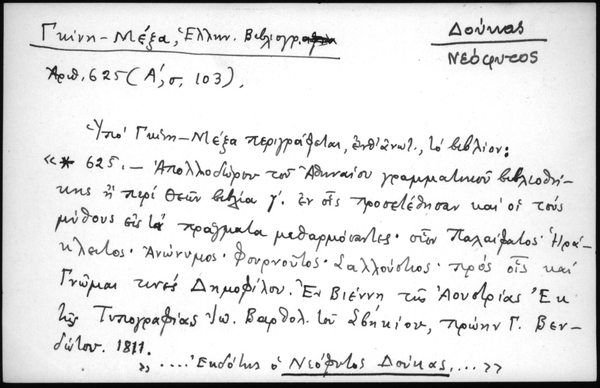 Γκίνη-Μέξα, Ἑλλην. Βιβλιογρ.
Δούκας
Νεόφυτος
Ἀριθ. 625 (Α΄, σ. 103).
Ὑπό Γκίνη-Μέξα περιγράφεται, ἐνθ' ἀνωτ., τό βιβλίον:
«* 625.— Ἀπολλοδώρου τοῦ Ἀθηναίου γραμματικοῦ βιβλιοθή-
κης ἤ περί θεῶν βιβλία γ΄. ἐν οἷς προσετέθησαν καί οἱ τούς
μύθους εἰς τά πράγματα μεθαρμόσαντες· οἷον Παλαίφατος· Ἡρά-
κλειτος· Ἀνώνυμος· Φουρνοῦτος· Σαλλούστιος· πρός οἷς καί
Γνῶμαι τινές Δημοφίλου. Ἐν Βιέννη τῆς Αουστρίας Ἐκ
τῆς Τυπογραφίας Ἰω. Βαρθολ. τοῦ Σβηκίου, πρώην Γ. Βεν-
δώτου. 1811.
».... Ἐκδότης ὁ Νεόφυτος Δούκας....»